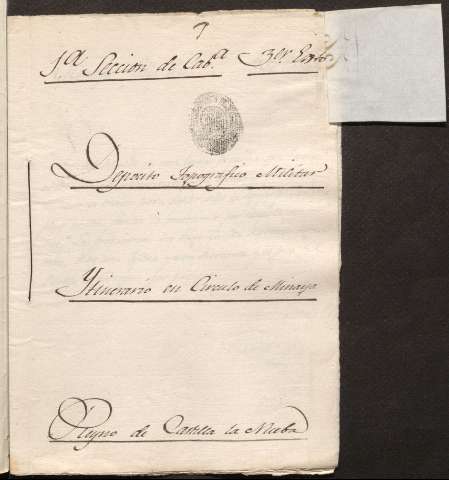 7
1ª Seccion de Cabª 3er
Deposito Topografico Militar
Itinerario en Circulo de Minaya
Reyno de Castilla la Nueba